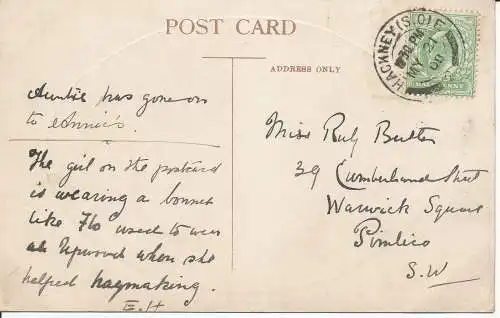 POST CARD
ADDRESS ONLY
HACKNEY (S.O) E
MY 21
08
Auntie has gone on
to Annie's.
The girl on the postcard
is wearing a bonnet
like Flo used to wear
at Upwood when she
helped haymaking.
E.H
Miss Ruby Butter
39 Cumberland Street
Warwick Square
Pimlico
S.W